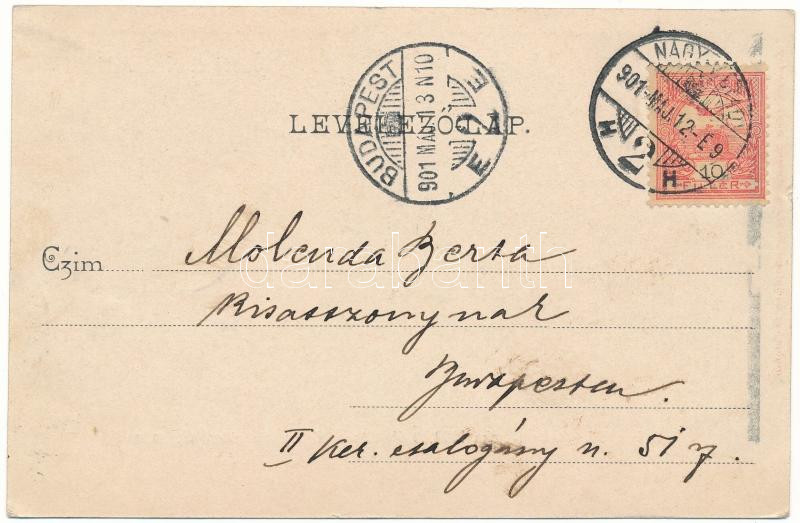 LEVELEZŐ-LAP.
BUDAPEST
901 MÁJ. 13 N10
NAGY
901-MÁJ.12-E9
H 2 H
10
FILLÉR
darabanth
Czim Molenda Berta
Kisasszonynak
Budapesten.
II Ker. csalogány u. 51